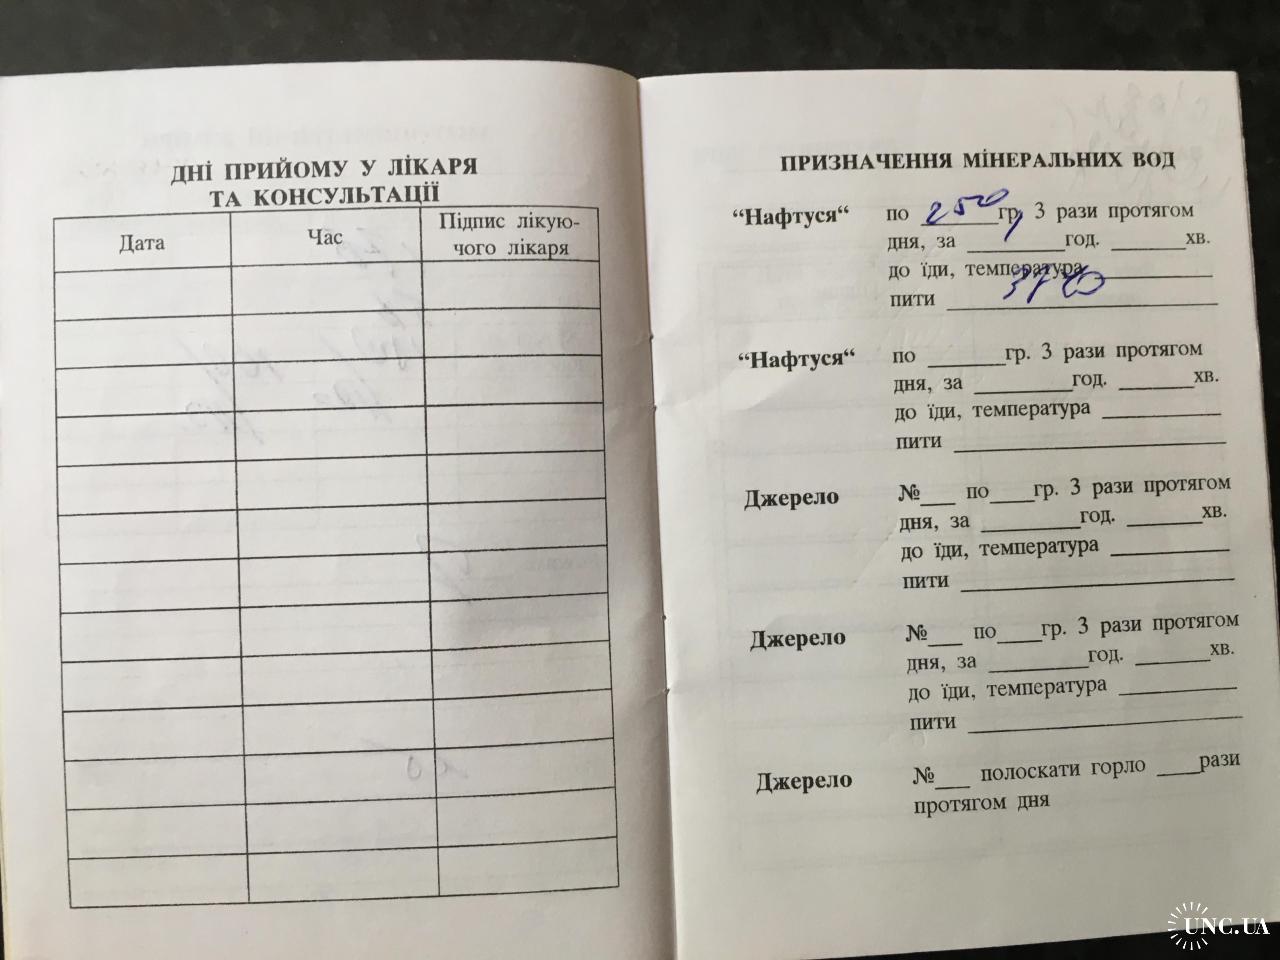 ДНІ ПРИЙОМУ У ЛІКАРЯ
ТА КОНСУЛЬТАЦІЇ
Дата
Час
Підпис лікую-
чого лікаря
ПРИЗНАЧЕННЯ МІНЕРАЛЬНИХ ВОД
“Нафтуся“ по 250 гр, 3 рази протягом
дня, за ________ год. ______ хв.
до їди, температура ________
пити ________
“Нафтуся“ по ______гр. 3 рази протягом
дня, за ________год. ______хв.
до їди, температура ________
пити ________
Джерело №___ по____гр. 3 рази протягом
дня, за ________год. ______хв.
до їди, температура ________
пити ________
Джерело №___ по____гр. 3 рази протягом
дня, за ________год. ______хв.
до їди, температура ________
пити ________
Джерело №___ полоскати горло ____рази
протягом дня
UNC.UA